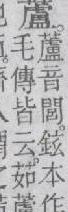 蘆。
蘆音閭。鉉本作
毛傳皆云。茹藘